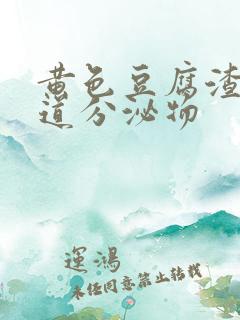 黄色豆腐渣
道分泌物
運鴻
未经同意禁止转载